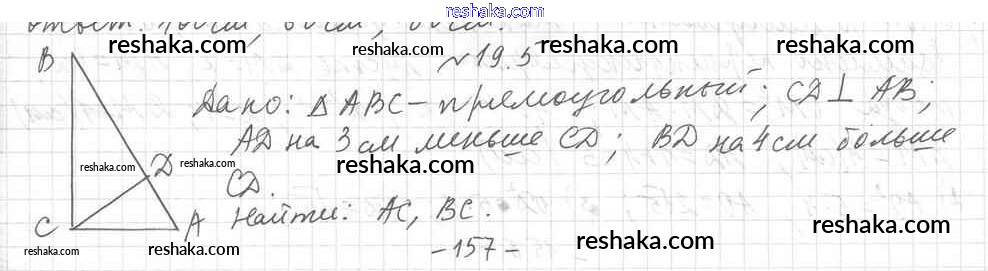 reshaka.com
ответ:
reshaka.com reshaka.com reshaka.com
№ 19.5
B
Дано: △ ABC - прямоугольный; CD ⊥ AB;
AD на 3 см меньше CD; BD на 4 см больше
reshaka.com D reshaka.com reshaka.com reshaka.com
CD.
Найти: AC, BC.
C A
reshaka.com reshaka.com reshaka.com reshaka.com
-157-